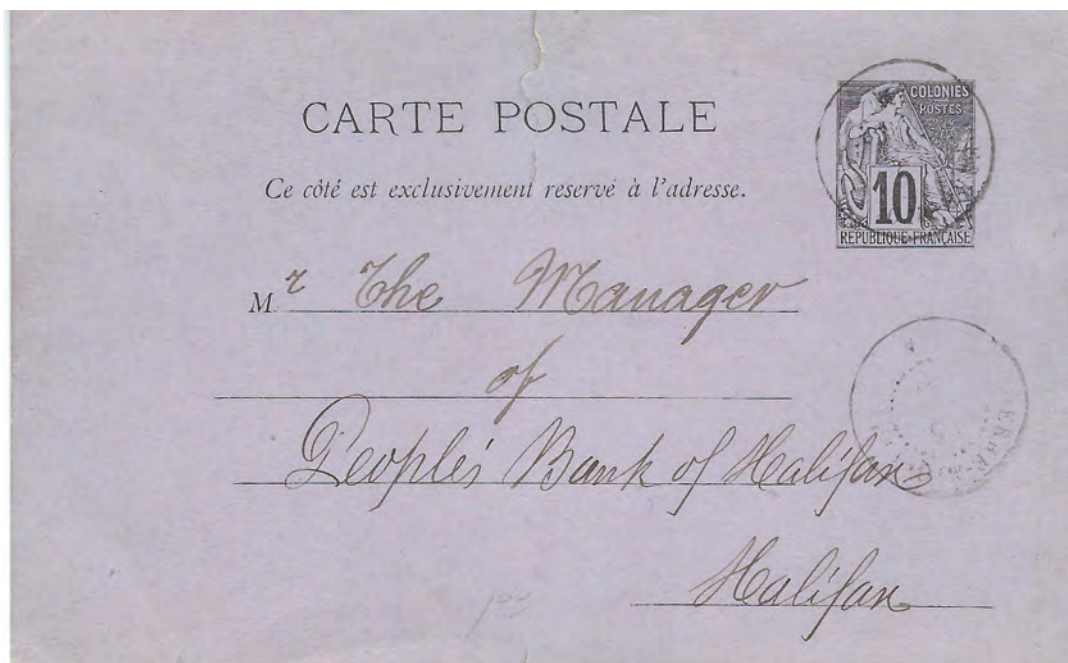 CARTE POSTALE
Ce côté est exclusivement reservé à l'adresse.
COLONIES
POSTES
10
REPUBLIQUE FRANÇAISE
M r The Manager
of
People's Bank of Halifax
Halifax